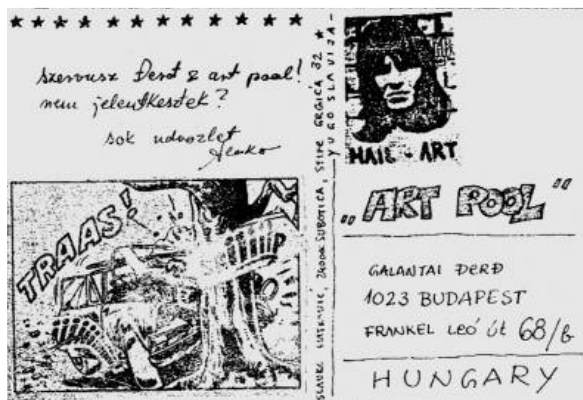 Szervusz Đerđ & art pool!
nem jelentkeztek?
sok udvozlet
Slavko
TRAAS!
SLAVKO MATKOVIĆ, 24000 SUBOTICA, STIPE GRGIĆA 32
YUGOSLAVIJA-
MAIL-ART
„ART POOL"
GALANTAI ĐERĐ
1023 BUDAPEST
FRANKEL LEÓ út 68/b
HUNGARY